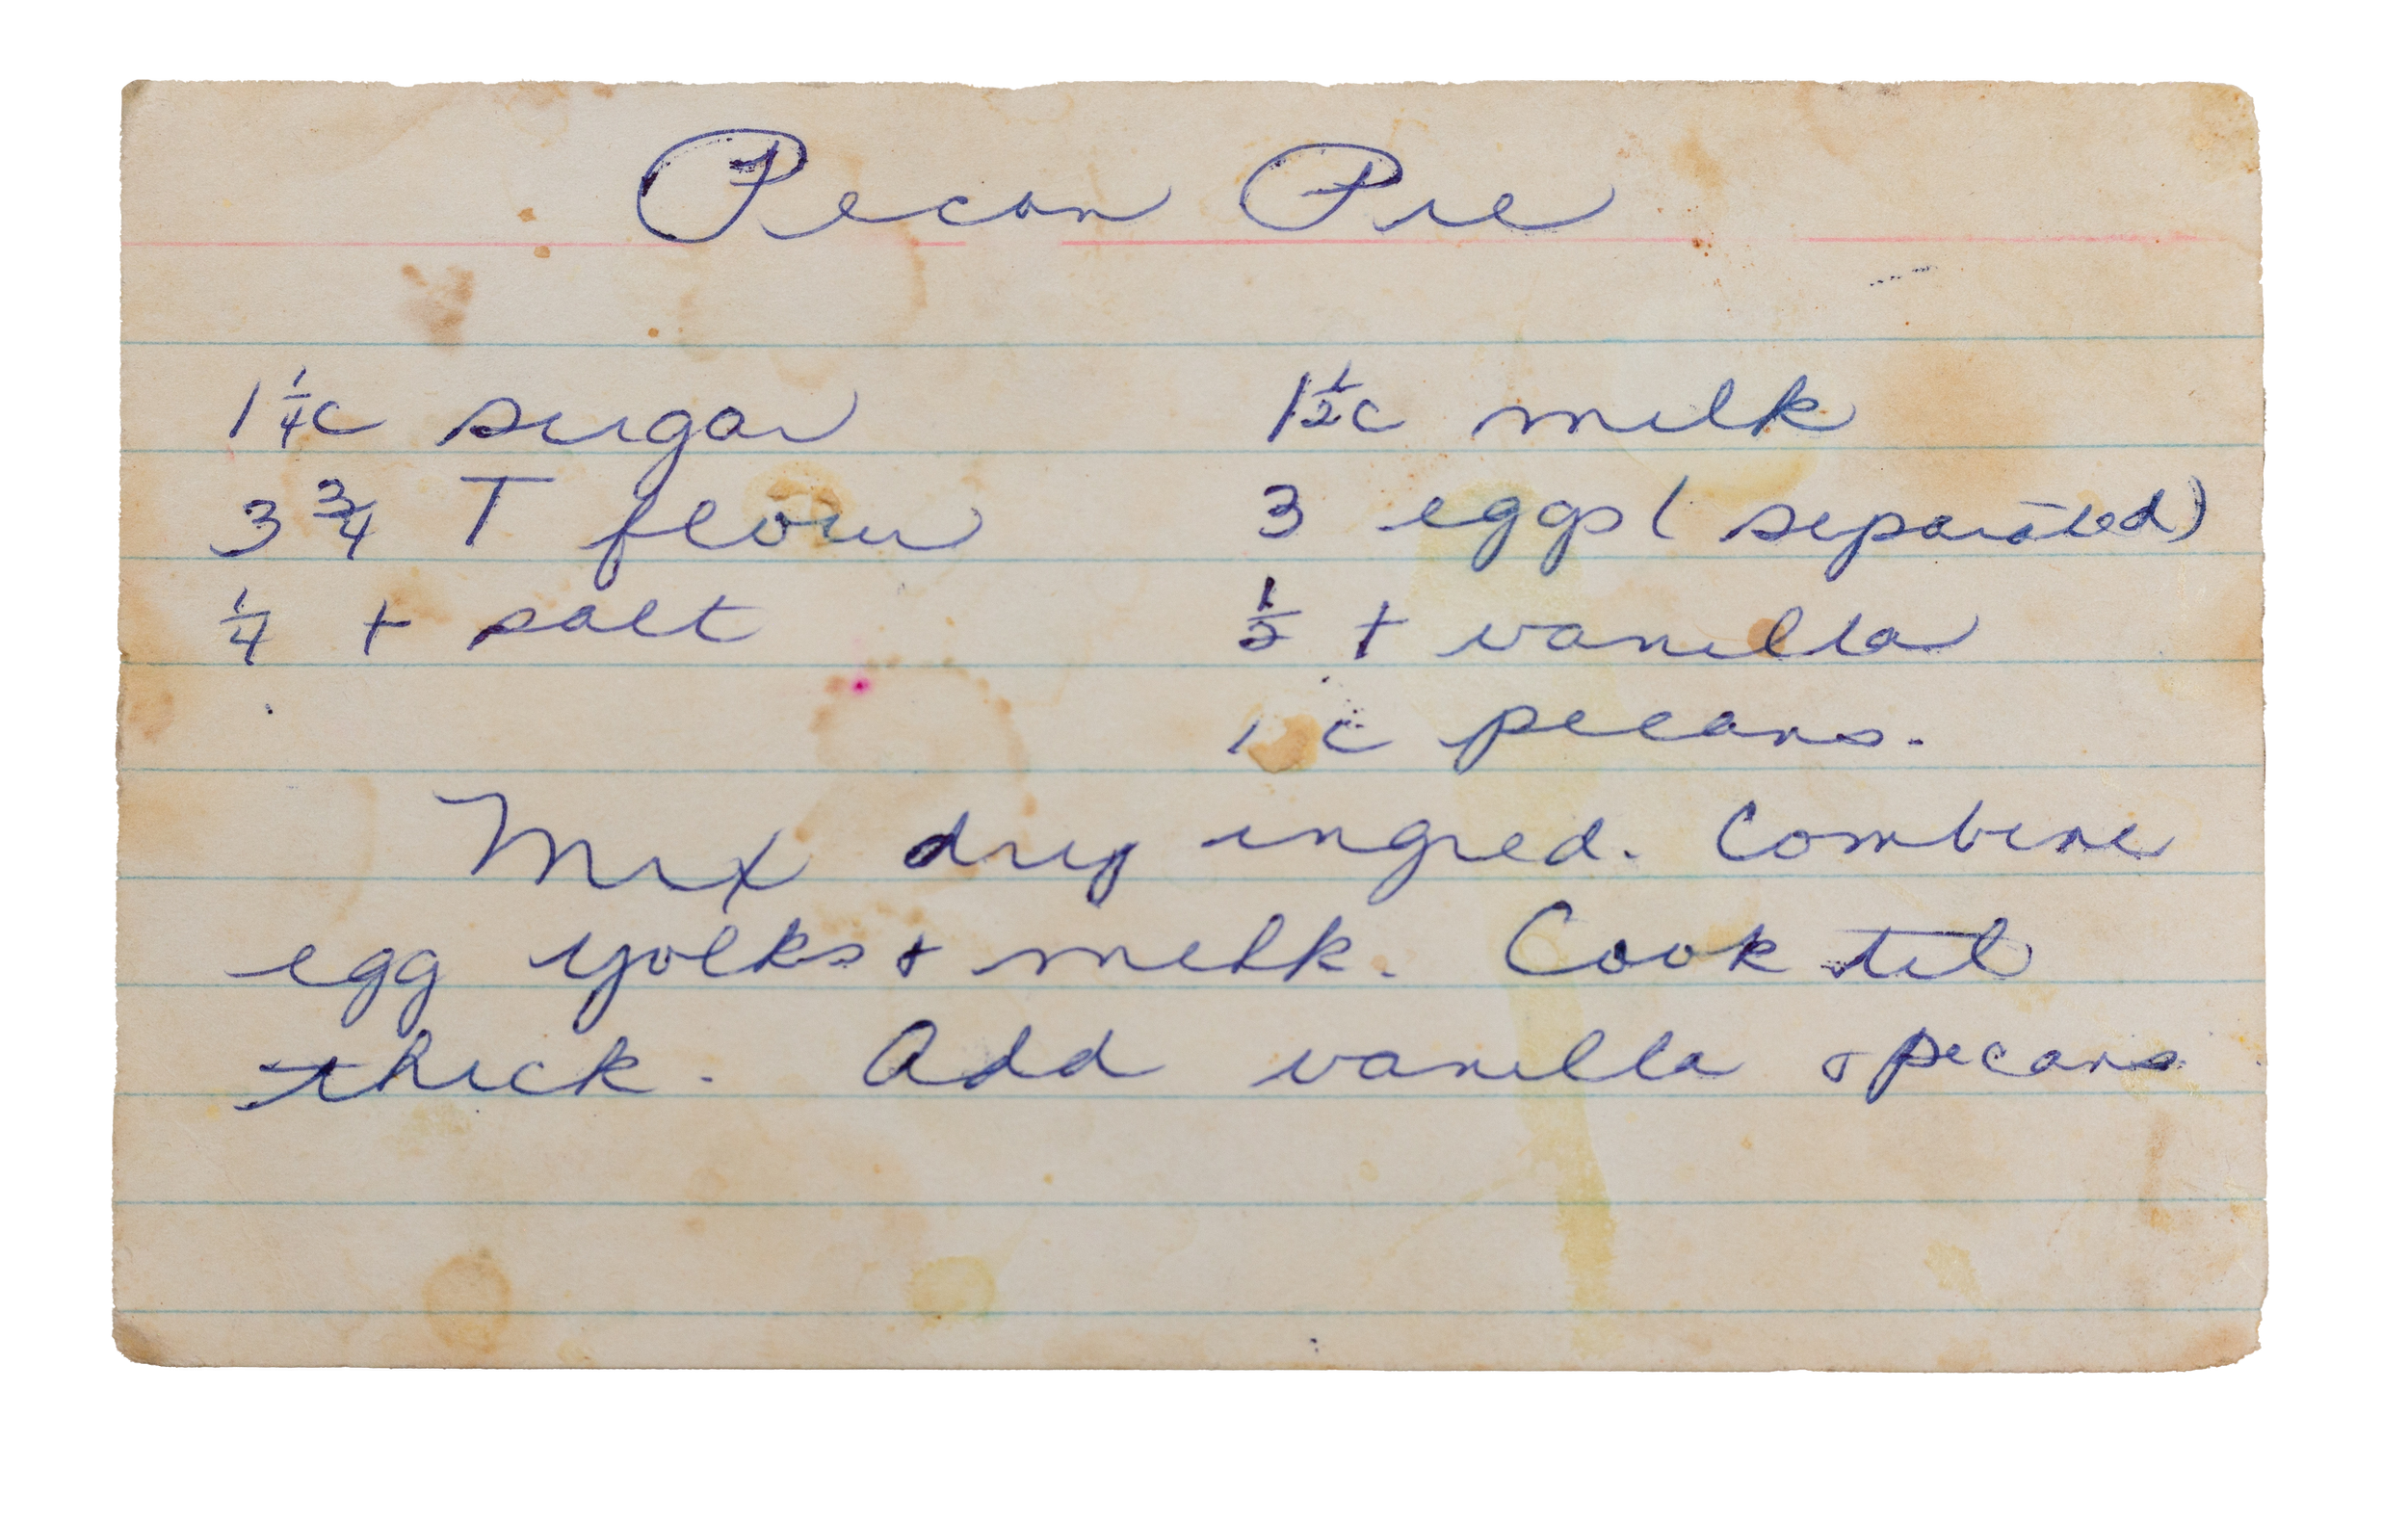 Pecan Pie
1 1/4 c sugar 1 1/2 c milk
3 3/4 T flour 3 eggs ( separated)
1/4 t salt 1/2 t vanilla
1 c pecans.
Mix dry ingred. Combine
egg yolks & milk. Cook til
thick. Add vanilla & pecans